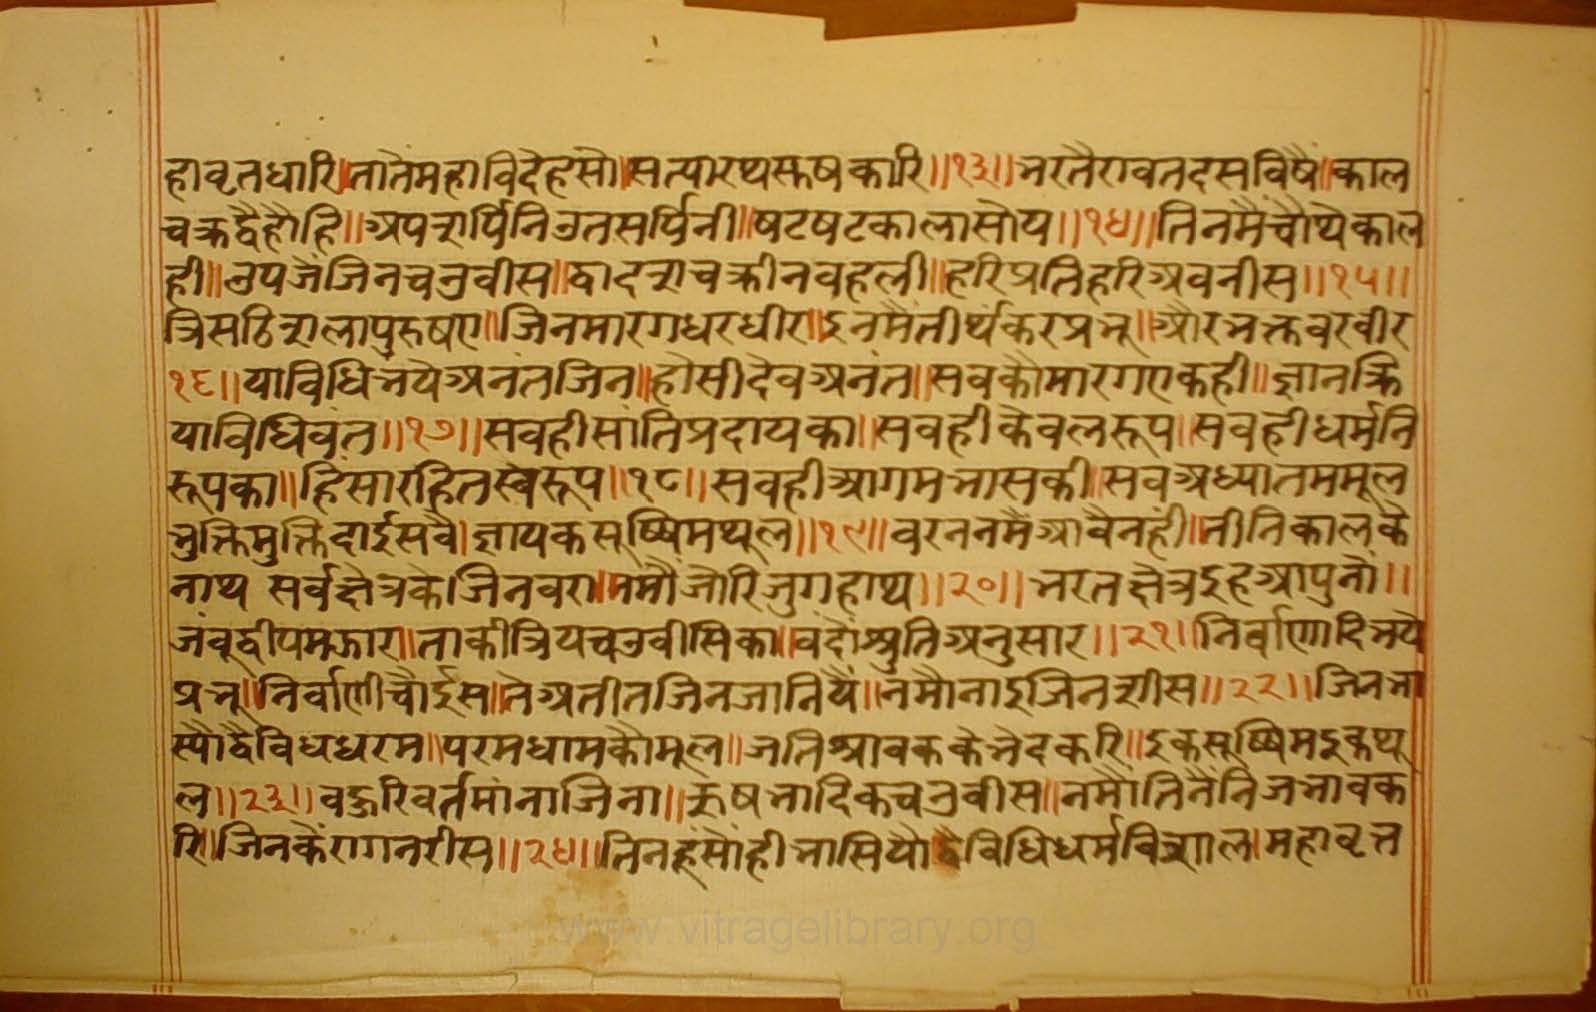 हावृतधारि॥तातैंमहाविदेहसो॥सत्यारथरूषकारि॥१३॥भरतैरावतदसविषैं॥काल
चक्रद्वैहौहि॥अपशर्पिनिउतसर्पिनी॥षटषटकालासोय॥१४॥तिनमैंचौथेकाल
ही॥उपजैंजिनचउवीस॥द्वादशचक्रीनवहली॥हरिप्रतिहरिअवनीस॥१५॥
त्रिसठिशलापुरुषए॥जिनमारगधरधीर॥इनमैंतीर्थंकरप्रभू॥औरभक्तवरवीर
१६॥याविधिभयेअनंतजिन॥होसीदेवअनंत॥सवकौमारगएकही॥ज्ञानक्रि
याविधिवंत॥१७॥सवहीसांतिप्रदायका॥सवहीकेवलरूप॥सवहीधर्मनि
रूपका॥हिंसारहितस्वरूप॥१८॥सवहीआगमभासकी॥सवअध्यातममूल
भुक्तिमुक्तिदाईसवै।ज्ञायकसूष्षिमथूल॥१९॥वरननमैंआवैनहीं॥तीनिकालके
नाथ सर्वक्षेत्रकेजिनवरा॥नमौंजोरिजुगहाथ॥२०॥भरतक्षेत्रइहआपुनौं॥
जंवूद्वीपमझार॥ताकीत्रियचउवीसिका॥वंदौंश्रुतिअनुसार॥२१॥निर्वाणादिभये
प्रभू॥निर्वाणीचौईस॥तेअतीतजिनजानियैं॥नमौनाइजिनशीस॥२२॥जिनभा
स्यौद्वैविधधरम॥परमधामकौमूल॥जतिश्रावककेभेदकरि॥इकसूष्षिमइकथू
ल॥२३॥वहुरिवर्तमांनाजिना॥रूषभादिकचउवीस॥नमौंतिनैंनिजभावक
रि॥जिनकैंरागनरीस॥२४॥तिनहूंसौंहीभासियौ॥द्वैविधिधर्मविशाल।महावृत
www.vitragelibrary.org